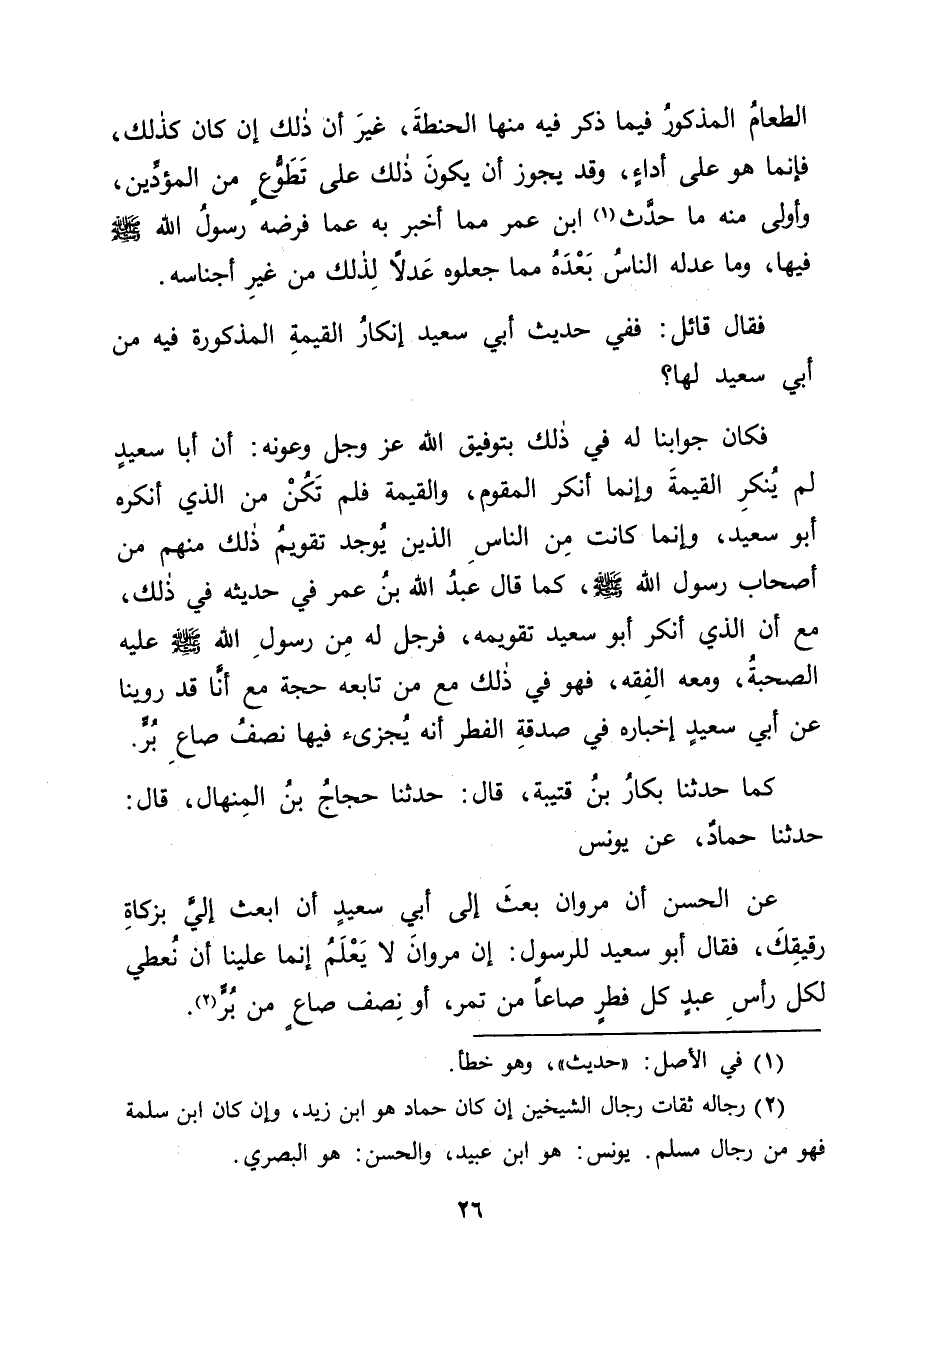 الطعامُ المذكورُ فيما ذكر فيه منها الحنطةَ، غيرَ أن ذٰلك إن كان كذٰلك،
فإنما هو على أداءٍ، وقد يجوز أن يكونَ ذٰلك على تَطَوُّعٍ من المؤدِّين،
وأولى منه ما حدَّث(١) ابن عمر مما أخبر به عما فرضه رسولُ الله ﷺ
فيها، وما عدله الناسُ بَعْدَهُ مما جعلوه عَدلاً لِذٰلك من غيرِ أجناسه.
فقال قائل: ففي حديث أبي سعيد إنكارُ القيمةِ المذكورة فيه من
أبي سعيد لها؟
فكان جوابنا له في ذٰلك بتوفيق الله عز وجل وعونه: أن أبا سعيدٍ
لم يُنكرِ القيمةَ وإنما أنكر المقوم، والقيمة فلم تَكُنْ من الذي أنكره
أبو سعيد، وإنما كانت مِن الناسِ الذين يُوجد تقويمُ ذٰلك منهم من
أصحاب رسول الله ﷺ، كما قال عبدُ الله بنُ عمر في حديثه في ذٰلك،
مع أن الذي أنكر أبو سعيد تقويمه، فرجل له مِن رسولِ الله ﷺ عليه
الصحبةُ، ومعه الفِقه، فهو في ذٰلك مع من تابعه حجة مع أنَّا قد روينا
عن أبي سعيدٍ إخباره في صدقةِ الفطر أنه يُجزىء فيها نصفُ صاعِ بُرٍّ.
كما حدثنا بكارُ بنُ قتيبة، قال: حدثنا حجاجُ بنُ المِنهال، قال:
حدثنا حمادٌ، عن يونس
عن الحسن أن مروان بعثَ إلى أبي سعيدٍ أن ابعث إليَّ بزكاةِ
رقيقِكَ، فقال أبو سعيد للرسول: إن مروانَ لا يَعْلَمُ إنما علينا أن نُعطي
لكل رأسِ عبدٍ كل فطرٍ صاعاً من تمر، أو نِصف صاعٍ من بُرٍّ(٢).
(١) في الأصل: «حديث»، وهو خطأ.
(٢) رجاله ثقات رجال الشيخين إن كان حماد هو ابن زيد، وإن كان ابن سلمة
فهو من رجال مسلم. يونس: هو ابن عبيد، والحسن: هو البصري.
٢٦